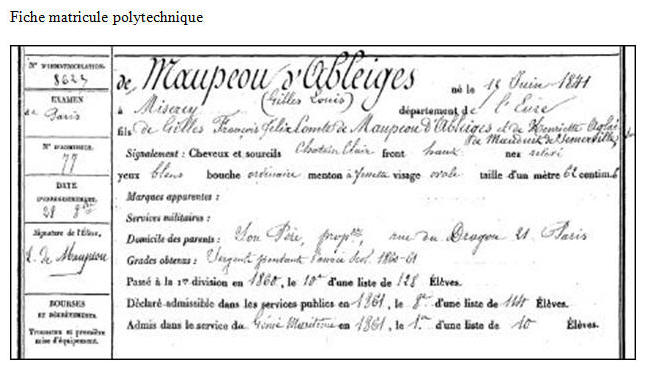 Fiche matricule polytechnique
N° D'IMMATRICULATION.
8623
EXAMEN
de Paris
N° D'ADMISSION.
77
DATE
D'ENREGISTREMENT.
28 8bre
Signature de l'Élève.
L. de Maupeou
BOURSES
ET DÉGRÈVEMENTS.
Trousseau et première
mise d'équipement.
de Maupeou d'Ableiges né le 15 Juin 1841
(Gilles Louis)
à Miserey département de l'Eure
fils de Gilles François Felix Comte de Maupeou d'Ableiges et de Henriette Aglaé
de Manduit de Semerville
Signalement : Cheveux et sourcils Chatain Clair front haut nez relevé
yeux bleus bouche ordinaire menton à fossette visage ovale taille d'un mètre 62 centim.
Marques apparentes :
Services militaires :
Domicile des parents : Son Père, propre, rue du Dragon 21. Paris
Grades obtenus : Sergent pendant l'année Scol. 1860-61
Passé à la 1re division en 1860, le 10e d'une liste de 128 Élèves.
Déclaré admissible dans les services publics en 1861, le 8e d'une liste de 144 Élèves.
Admis dans le service du Génie Maritime en 1861, le 1er d'une liste de 10 Élèves.